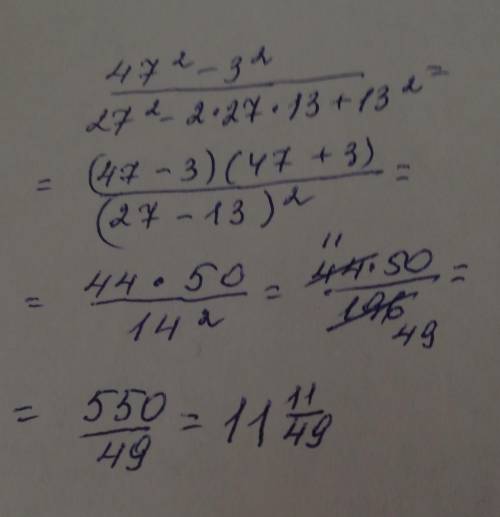 47² - 3²
27² - 2·27·13 + 13² =
= (47 - 3)(47 + 3)
(27 - 13)² =
= 44 · 50 / 14² = 11 44·50 / 196 49 =
= 550/49 = 11 11/49